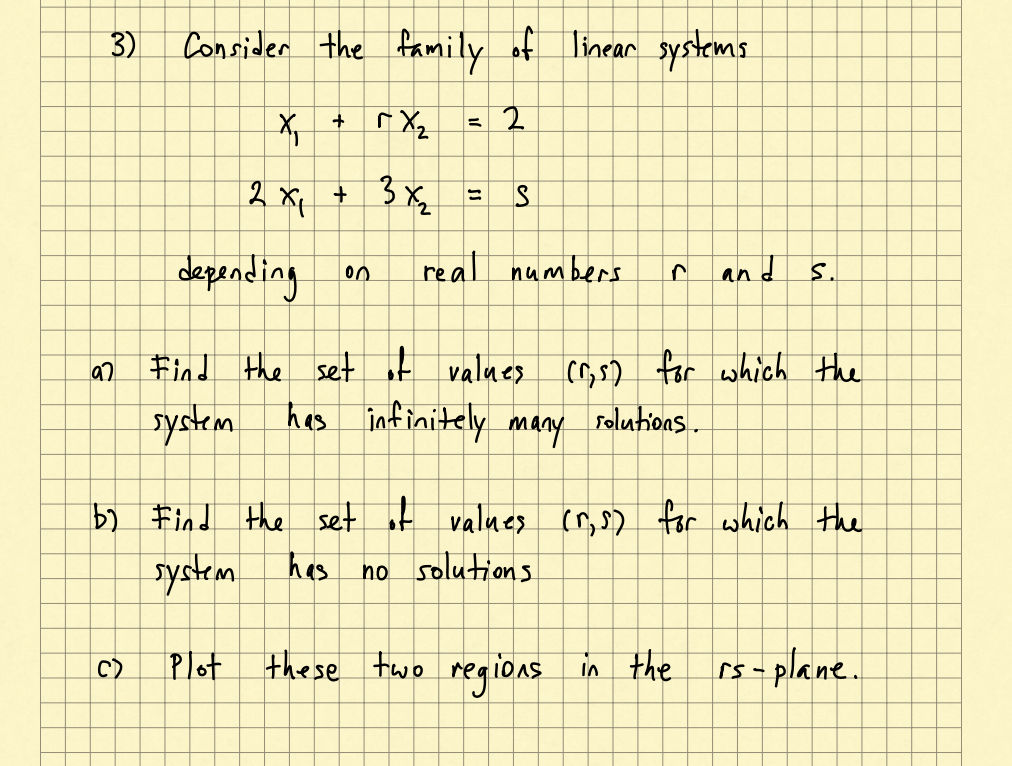 3) Consider the family of linear systems
x₁ + r x₂ = 2
2 x₁ + 3 x₂ = s
depending on real numbers r and s.
a) Find the set of values (r,s) for which the
system has infinitely many solutions.
b) Find the set of values (r,s) for which the
system has no solutions
c) Plot these two regions in the rs-plane.